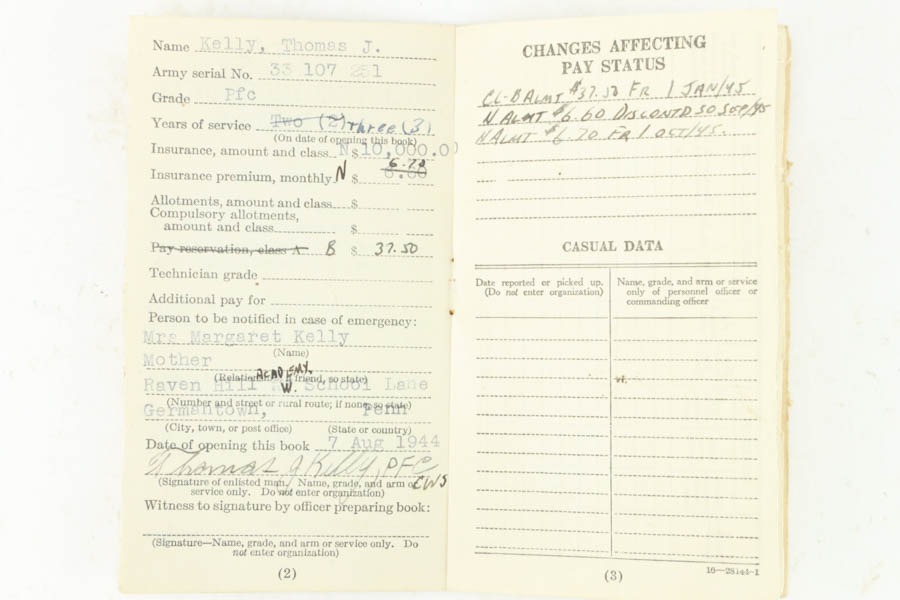 Name Kelly, Thomas J.
Army serial No. 33 107 251
Grade Pfc
Years of service Two (2) Three (3)
(On date of opening this book)
Insurance, amount and class N $ 10,000.00
6.70
Insurance premium, monthly N $ 6.60
Allotments, amount and class $
Compulsory allotments,
amount and class $
Pay reservation, class A B $ 37.50
Technician grade
Additional pay for
Person to be notified in case of emergency:
Mrs Margaret Kelly
(Name)
Mother
ACADEMY.
(Relationship friend, so state)
W.
Raven Hill School Lane
(Number and street or rural route; if none, so state)
Germantown, Penn
(City, town, or post office) (State or country)
Date of opening this book 7 Aug 1944
Thomas J Kelly, PFC
CWS
(Signature of enlisted man. Name, grade, and arm or
service only. Do not enter organization)
Witness to signature by officer preparing book:
(Signature—Name, grade, and arm or service only. Do
not enter organization)
(2)
CHANGES AFFECTING
PAY STATUS
CL-B ALMT $37.50 FR 1 JAN/45
N ALMT $6.60 DISCONTD 30 SEP/45
N ALMT $6.70 FR 1 OCT/45.
CASUAL DATA
Date reported or picked up.
(Do not enter organization)
Name, grade, and arm or service
only of personnel officer or
commanding officer
(3)
16—28144-1